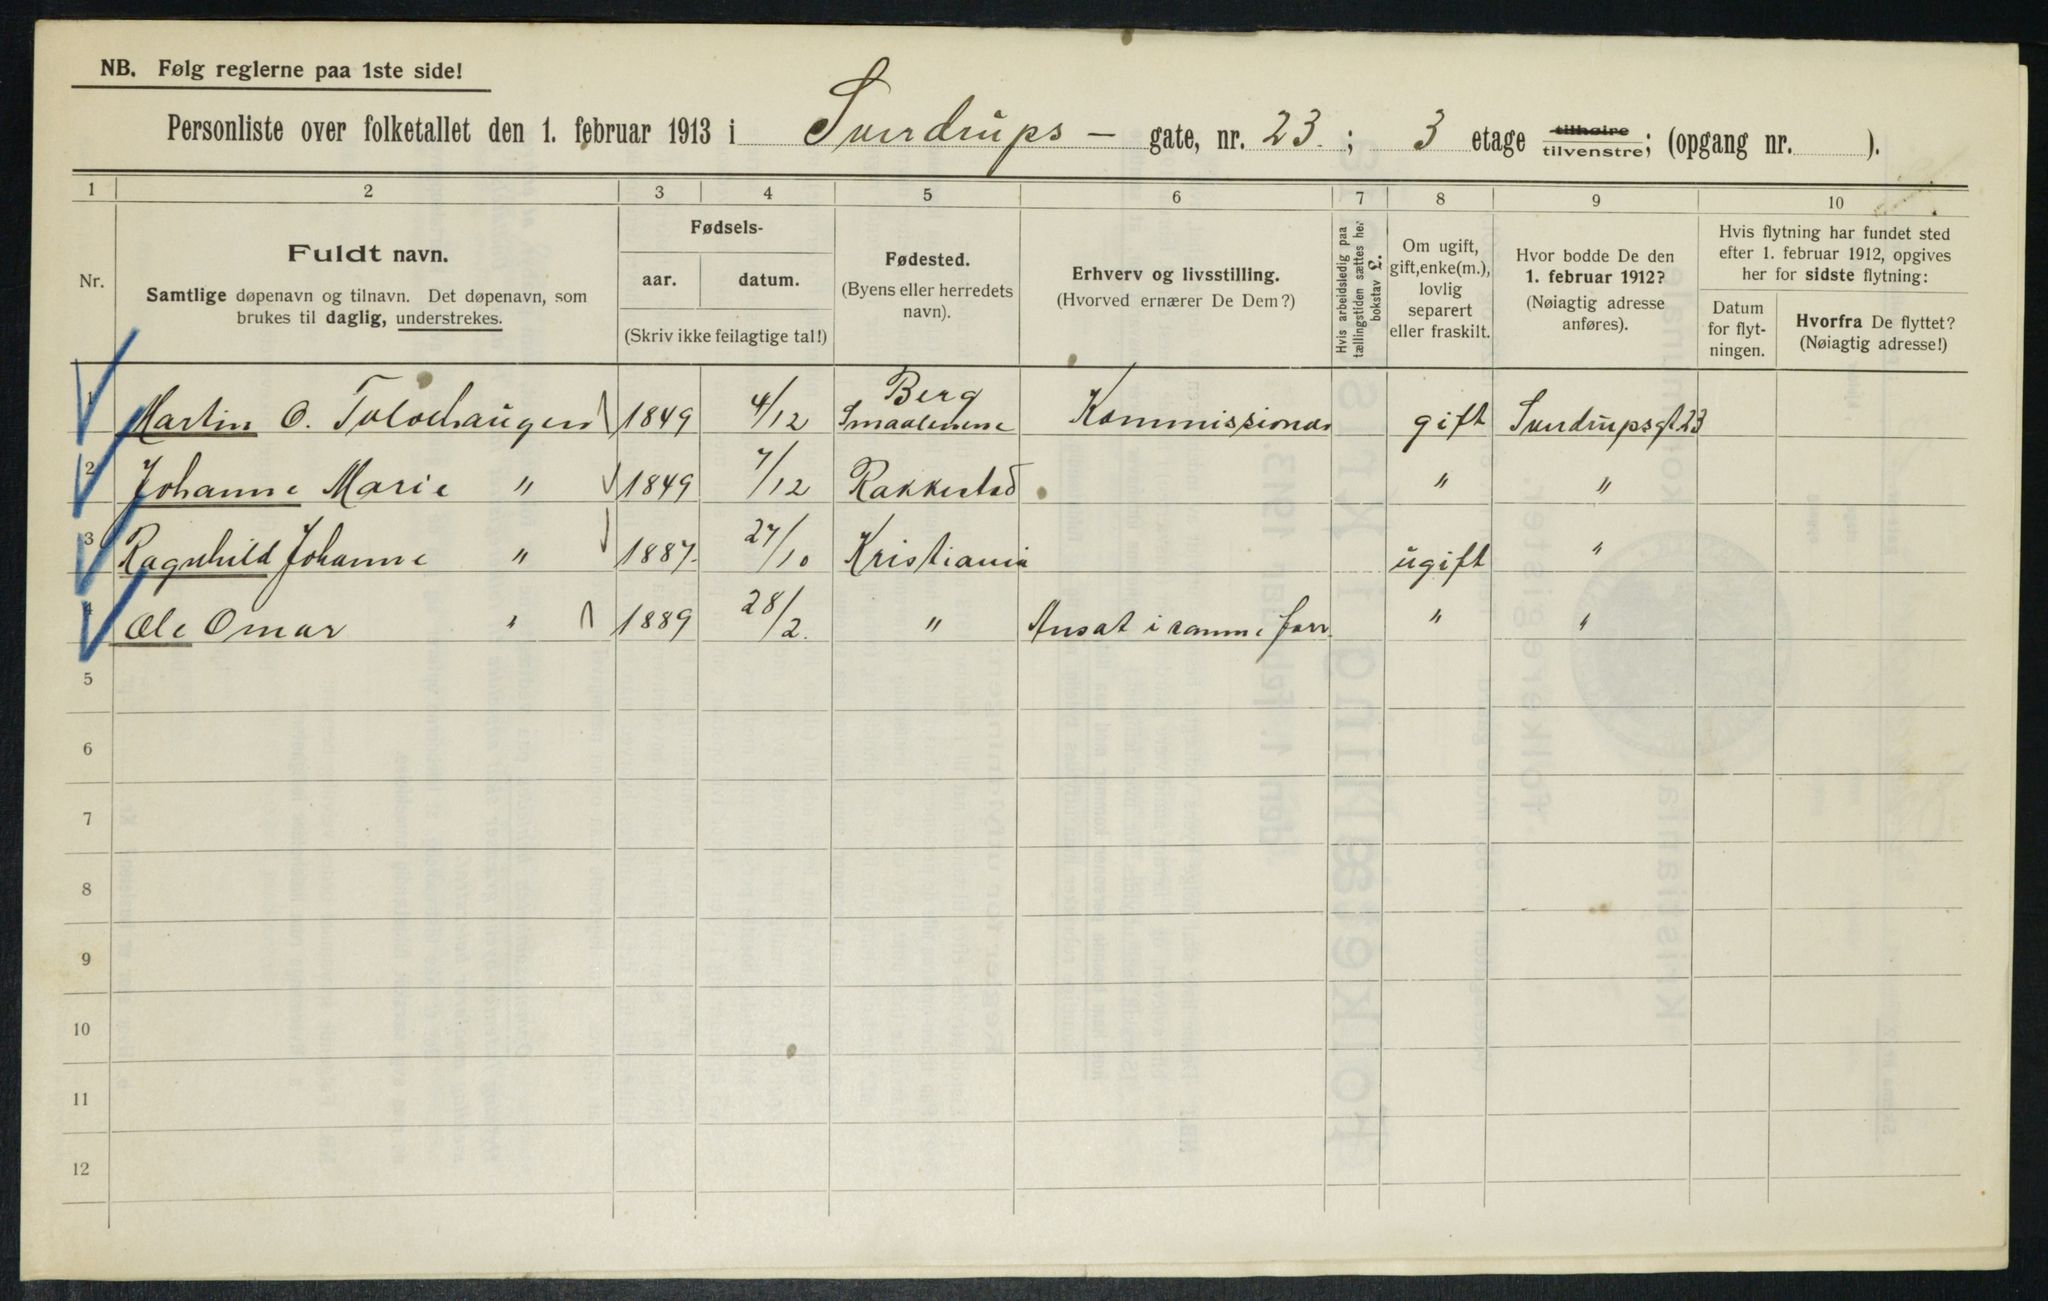 NB. Følg reglerne paa 1ste side!
Personliste over folketallet den 1. februar 1913 i Sverdrups – gate, nr. 23. ; 3 etage tilhøire tilvenstre; (opgang nr. ).
1 2 3 4 5 6 7 8 9 10
Nr.
Fuldt navn.
Samtlige døpenavn og tilnavn. Det døpenavn, som
brukes til daglig, understrekes.
Fødsels-
aar. datum.
(Skriv ikke feilagtige tal!)
Fødested.
(Byens eller herredets
navn).
Erhverv og livsstilling.
(Hvorved ernærer De Dem?)
Hvis arbeidsledig paa
tællingstiden sættes her
bokstav L.
Om ugift,
gift, enke(m.),
lovlig
separert
eller fraskilt.
Hvor bodde De den
1. februar 1912?
(Nøiagtig adresse
anføres).
Hvis flytning har fundet sted
efter 1. februar 1912, opgives
her for sidste flytning:
Datum
for flyt-
ningen.
Hvorfra De flyttet?
(Nøiagtig adresse!)
1 Martin O. 1849 4/12 Berg Smaalenene Kommissionær gift Sverdrupsgt 23
2 Johanne Marie " 1849 7/12 Rakkestad " "
3 Ragnhild Johanne " 1887. 27/10 Kristiania ugift "
4 Ole Omar " 1889 28/2. " Ansat i samme forr. " "
5
6
7
8
9
10
11
12